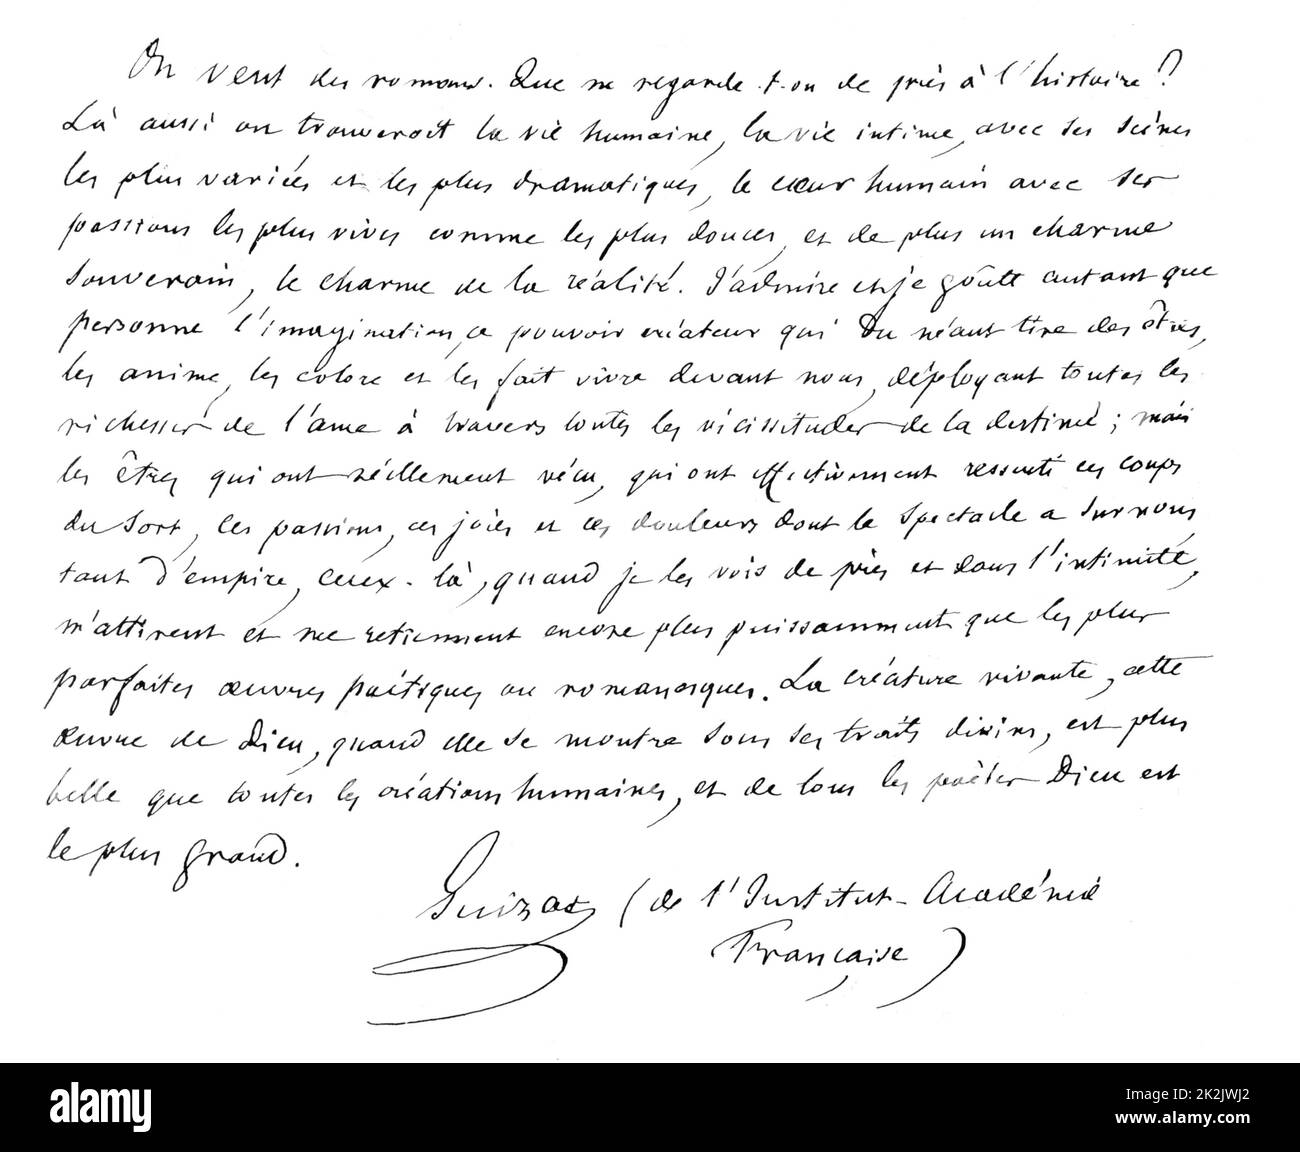 On veut des romans. Que ne regarde-t-on de près à l'histoire?
Là aussi on trouveroit la vie humaine, la vie intime, avec ses scènes
les plus variées et les plus dramatiques, le cœur humain avec ses
passions les plus vives comme les plus douces, et de plus un charme
souverain, le charme de la réalité. J'admire et je goûte autant que
personne l'imagination, ce pouvoir créateur qui du néant tire des êtres,
les anime, les colore et les fait vivre devant nous, déployant toutes les
richesses de l'âme à travers toutes les vicissitudes de la destinée; mais
les êtres qui ont réellement vécu, qui ont effectivement ressenti ces coups
du sort, ces passions, ces joies et ces douleurs dont le spectacle a sur nous
tant d'empire, ceux-là, quand je les vois de près et dans l'intimité,
m'attirent et me retiennent encore plus puissamment que les plus
parfaites œuvres poétiques ou romanesques. La créature vivante, cette
œuvre de Dieu, quand elle se montre sous ses traits divins, est plus
belle que toutes les créations humaines, et de tous les poètes Dieu est
le plus grand.
Guizot (de l'Institut-Académie
Française)
alamy
Image ID: 2K2JWJ2
www.alamy.com